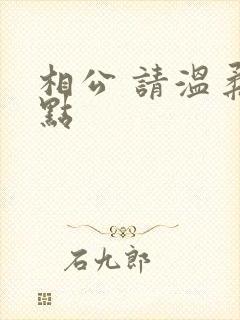 相公 請溫柔
點
石九郎